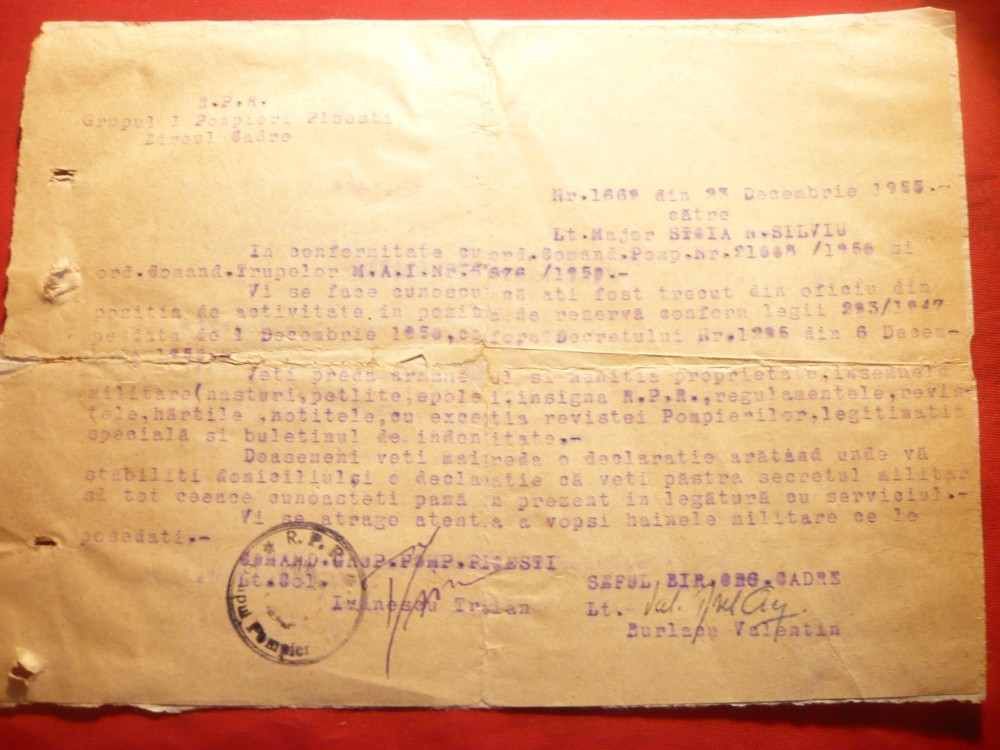 R.P.R.
Grupul 1 Pompieri Ploesti
Biroul Cadre
Nr.1662 din 23 Decembrie 1955.-
către
Lt.Major STOIA N.SILVIU
In conformitate cu ord.Comand.Pomp.Nr. /195 si
ord.Comand.Trupelor M.A.I.Nr. /195 .-
Vi se face cunoscut că ati fost trecut din oficiu din
pozitia de activitate in pozitia de rezervă conform legii 293/1947
pe data de 1 Decembrie Decretului Nr.1296 din 6 Decem-
Veti preda si munitia proprietate, insemnele
militare(nasturi,petlite,epoleti,insigna R.P.R.,regulamentele,revis-
tele,hărtile ,notitele,cu exceptia revistei Pompierilor,legitimatia
specială si buletinul de indentitate.-
Deasemeni veti mai preda o declaratie arătând unde vă
stabiliti domiciliul si o declaratie că veti păstra secretul militar
si tot ceeace cunoasteti pană in prezent in legătură cu serviciul.-
Vi se atrage atentia a vopsi hainele militare ce le
posedati.-
COMAND.GRUP.POMP.PLOESTI
Lt.Col.
Traian
SEFUL BIR.ORG.CADRE
Lt. Val.
Burlacu Valentin
* R.P.R
Grupul Pompieri